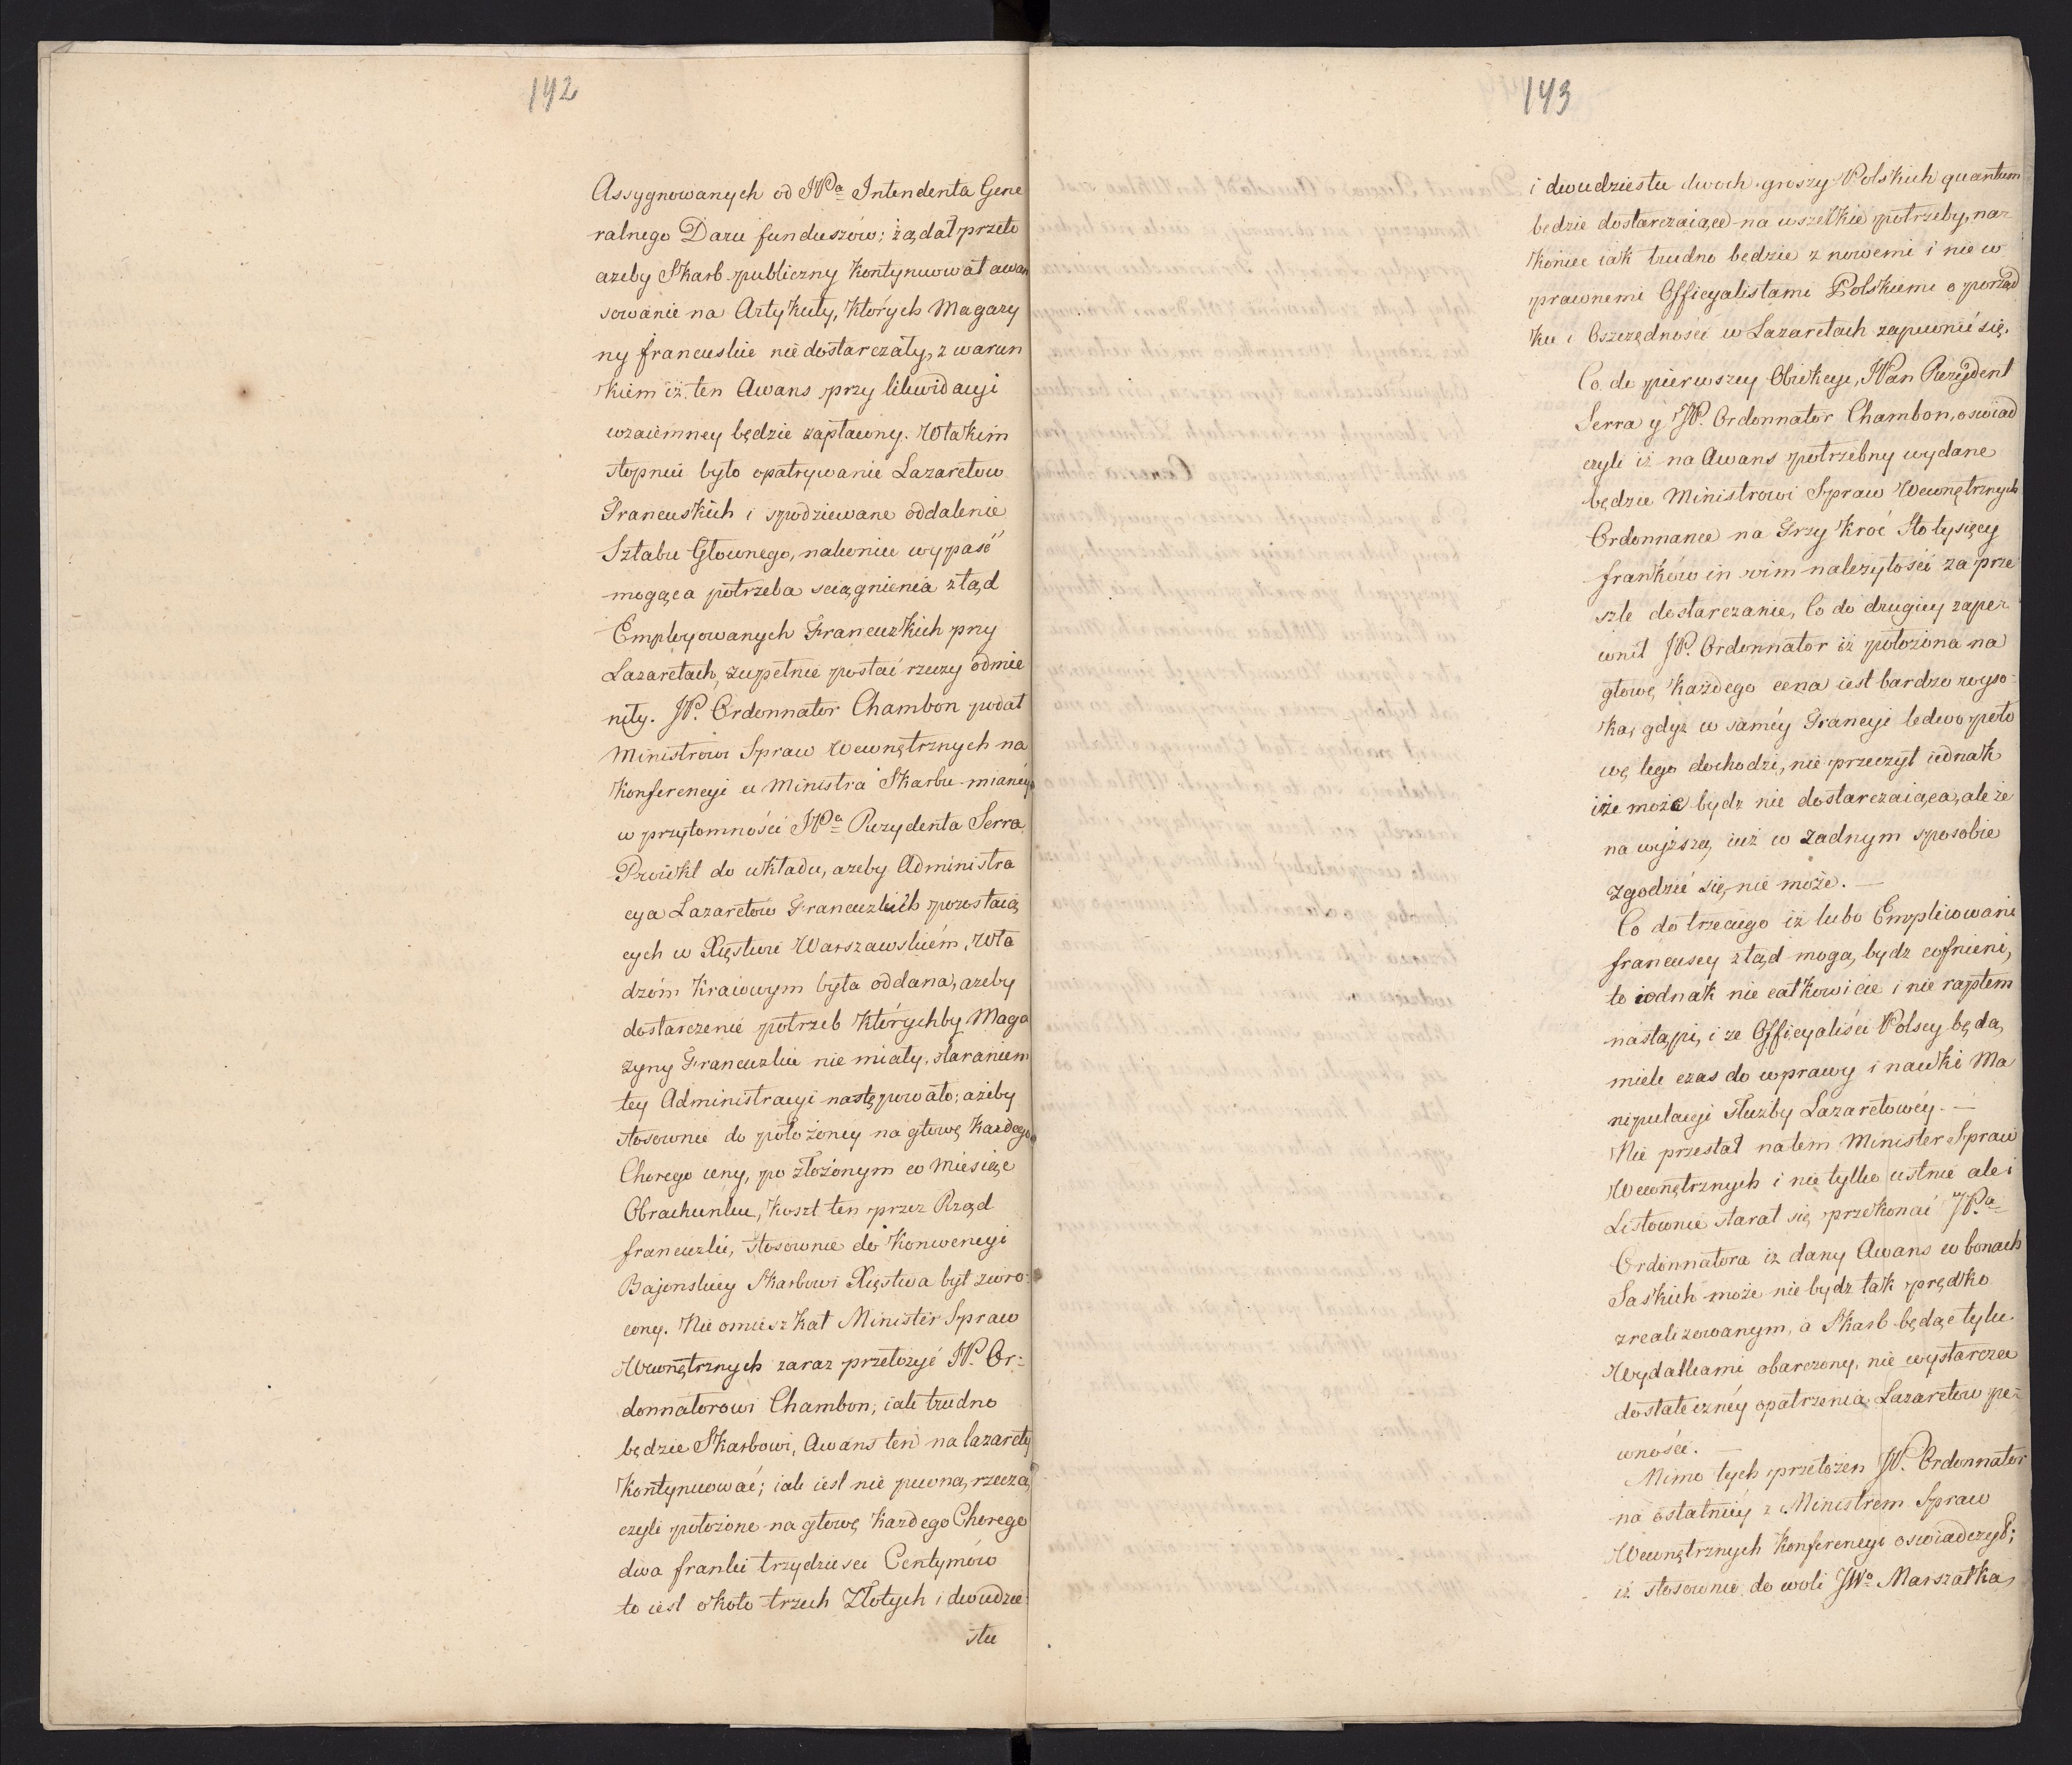 142
Assygnowanych od JPa Intendenta Gene
ralnego Daru funduszów; żądał przeto
azeby Skarb publiczny kontynuował awan
sowanie na Artykuły, których Magazy
ny francuskie nie dostarczały, z warun
kiem iż ten Awans przy likwidacyi
wzaiemney będzie zapłacony. W takim
stopniu było opatrywanie Lazaretow
Francuskich i spodziewane oddalenie
Sztabu Głownego, nakoniec wypaść
mogąca potrzeba sciągnienia ztąd
Employowanych Francuzkich przy
Lazaretach, zupełnie postać rzeczy odmie
niły. JP. Ordonnator Chambon podał
Ministrowi Spraw Wewnętrznych na
Konferencyi u Ministra Skarbu mianéy
w przytomności JPa Rezydenta Serra
Proiekt do układu, azeby Administra
cya Lazaretów Francuzkich pozostaią
cych w Xięstwie Warszawskiém, Wła
dzóm Kraiowym była oddana, azeby
dostarczenie potrzeb którychby Maga
zyny Francuzkie nie miały, staraniem
tey Administracyi następowało; ażeby
stosownie do położoney na głowę każdego
Chorego ceny, po złożonym co miesiąc
Obrachunku, koszt ten przez Rząd
francuzki, stosownie do Konwencyi
Bajonskiey Skarbowi Xięstwa był zwró-
cony. Nie omieszkał Minister Spraw
Wewnętrznych zaraz przełożyć JP. Or-
donnatorowi Chambon, iak trudno
będzie Skarbowi, Awans ten na lazarety
kontynuować; iak iest nie pewną rzeczą
czyli położone na głowę każdego Chorego
dwa franki trzydzieści Centymów
to iest około trzech Złotych i dwudzie-
stu
143
i dwudziestu dwoch groszy Polskich quantum
będzie dostarczaiące na wszelkie potrzeby, na-
koniec iak trudno będzie z nowemi i nie w
prawnemi Officyalistami Polskiemi o porząd
ku i Oszczędności w Lazaretach zapewnić się.
Co do pierwszey Obiekcyi, JPan Rezydent
Serra y JP. Ordonnator Chambon, oświad
czyli iż na Awans potrzebny wydane
będzie Ministrowi Spraw Wewnętrznych
Ordonnance na Trzy kroć Sto tysięcy
franków in vim należytości za prze
szłe dostarczanie, Co do drugiey zape-
wnił JP. Ordonnator iż położona na
głowę każdego cena iest bardzo wyso-
ka, gdyż w saméy Francyi ledwo poło
wę tego dochodzi, nie przeczył iednak
iże może bydz nie dostarczaiąca, ale że
na wyższą, iuż w żadnym sposobie
zgodzić się nie może. —
Co do trzeciego iż lubo Emploiowani
francuscy ztąd mogą bydz cofnieni,
to iednak nie całkowicie i nie raptem
nastąpi, i ze Officyaliści Polscy będą
mieli czas do wprawy i nauki Ma
nipulacyi Służby Lazaretowéy. —
Nie przestał na tem Minister Spraw
Wewnętrznych i nie tylko ustnie ale i
Listownie starał się przekonać JPa
Ordonnatora iż dany Awans w bonach
Saskich może nie bydz tak prędko
zrealizowanym, a Skarb będąc tylu
Wydatkami obarczony, nie wystarcza
dostateczney opatrzenia Lazaretow pe-
wności. —
Mimo tych przełożen JP. Ordonnator
na ostatniéy z Ministrem Spraw
Wewnętrznych Konferencyi oswiadczył;
iż stosownie do woli JWo Marszałka,